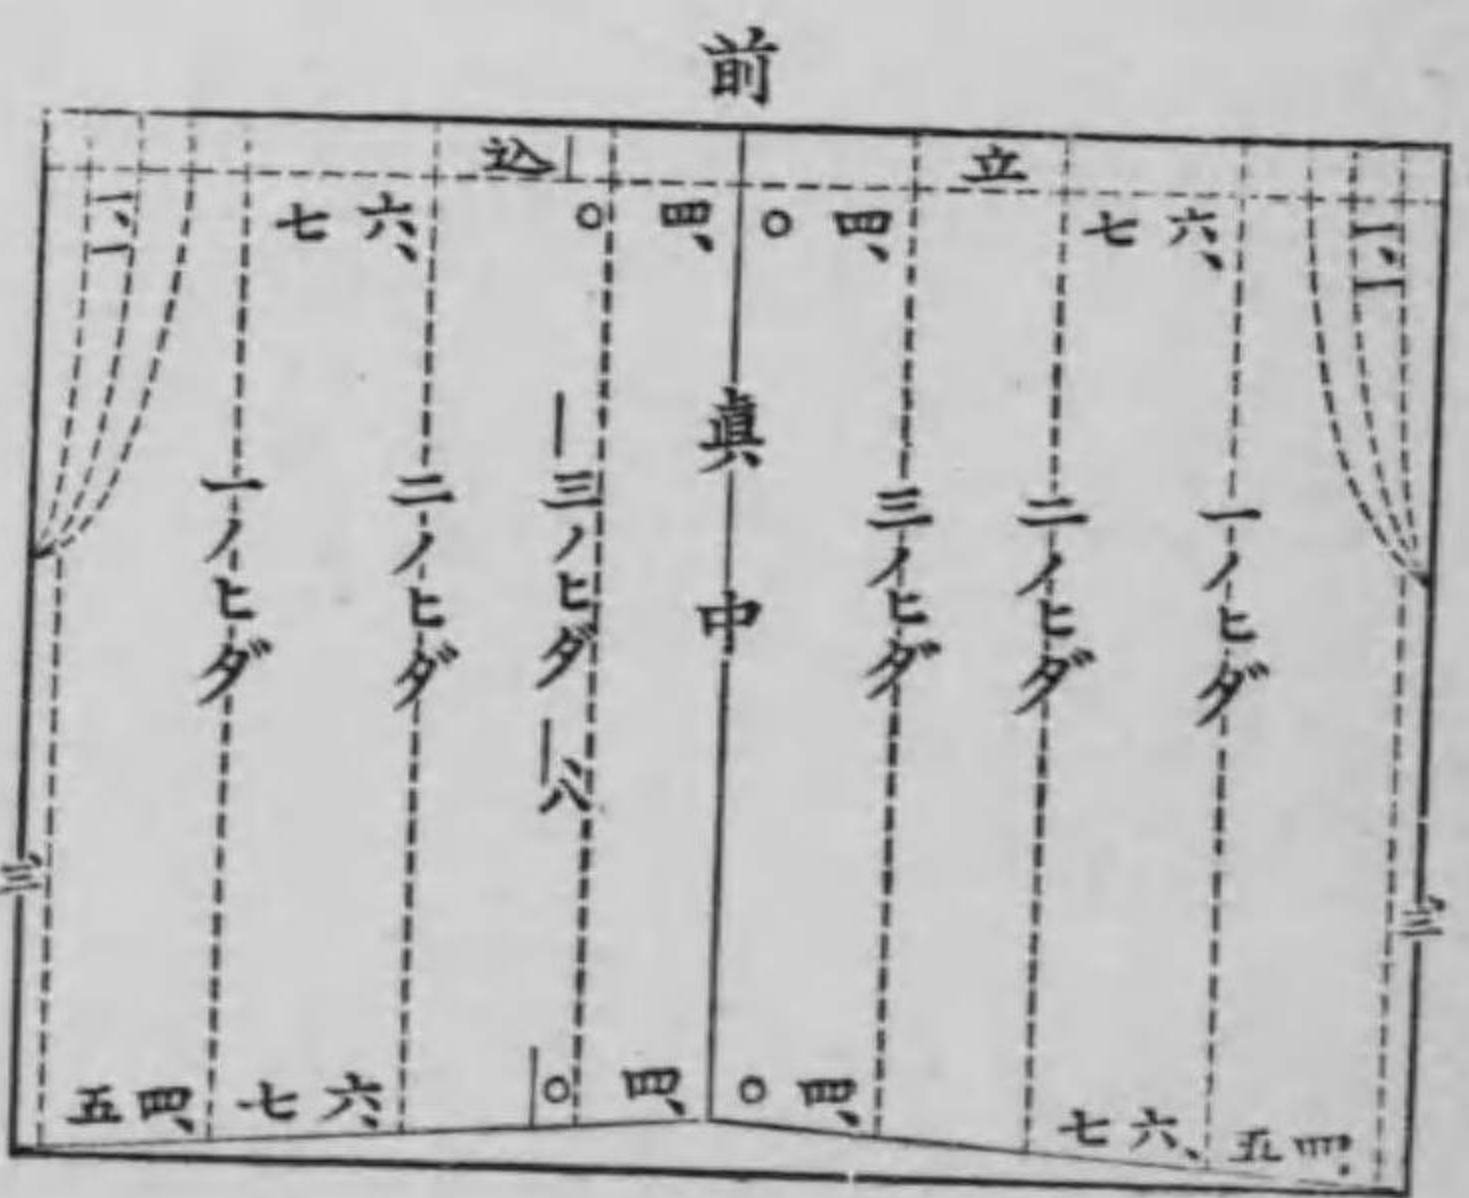 前
立込
一、一
六、七
四、〇
四、〇
六、七
一、一
一ノヒダ
二ノヒダ
三ノヒダ
眞中
三ノヒダ
二ノヒダ
一ノヒダ
、八
、三
、三
四、五
六、七
四、〇
四、〇
六、七
四、五